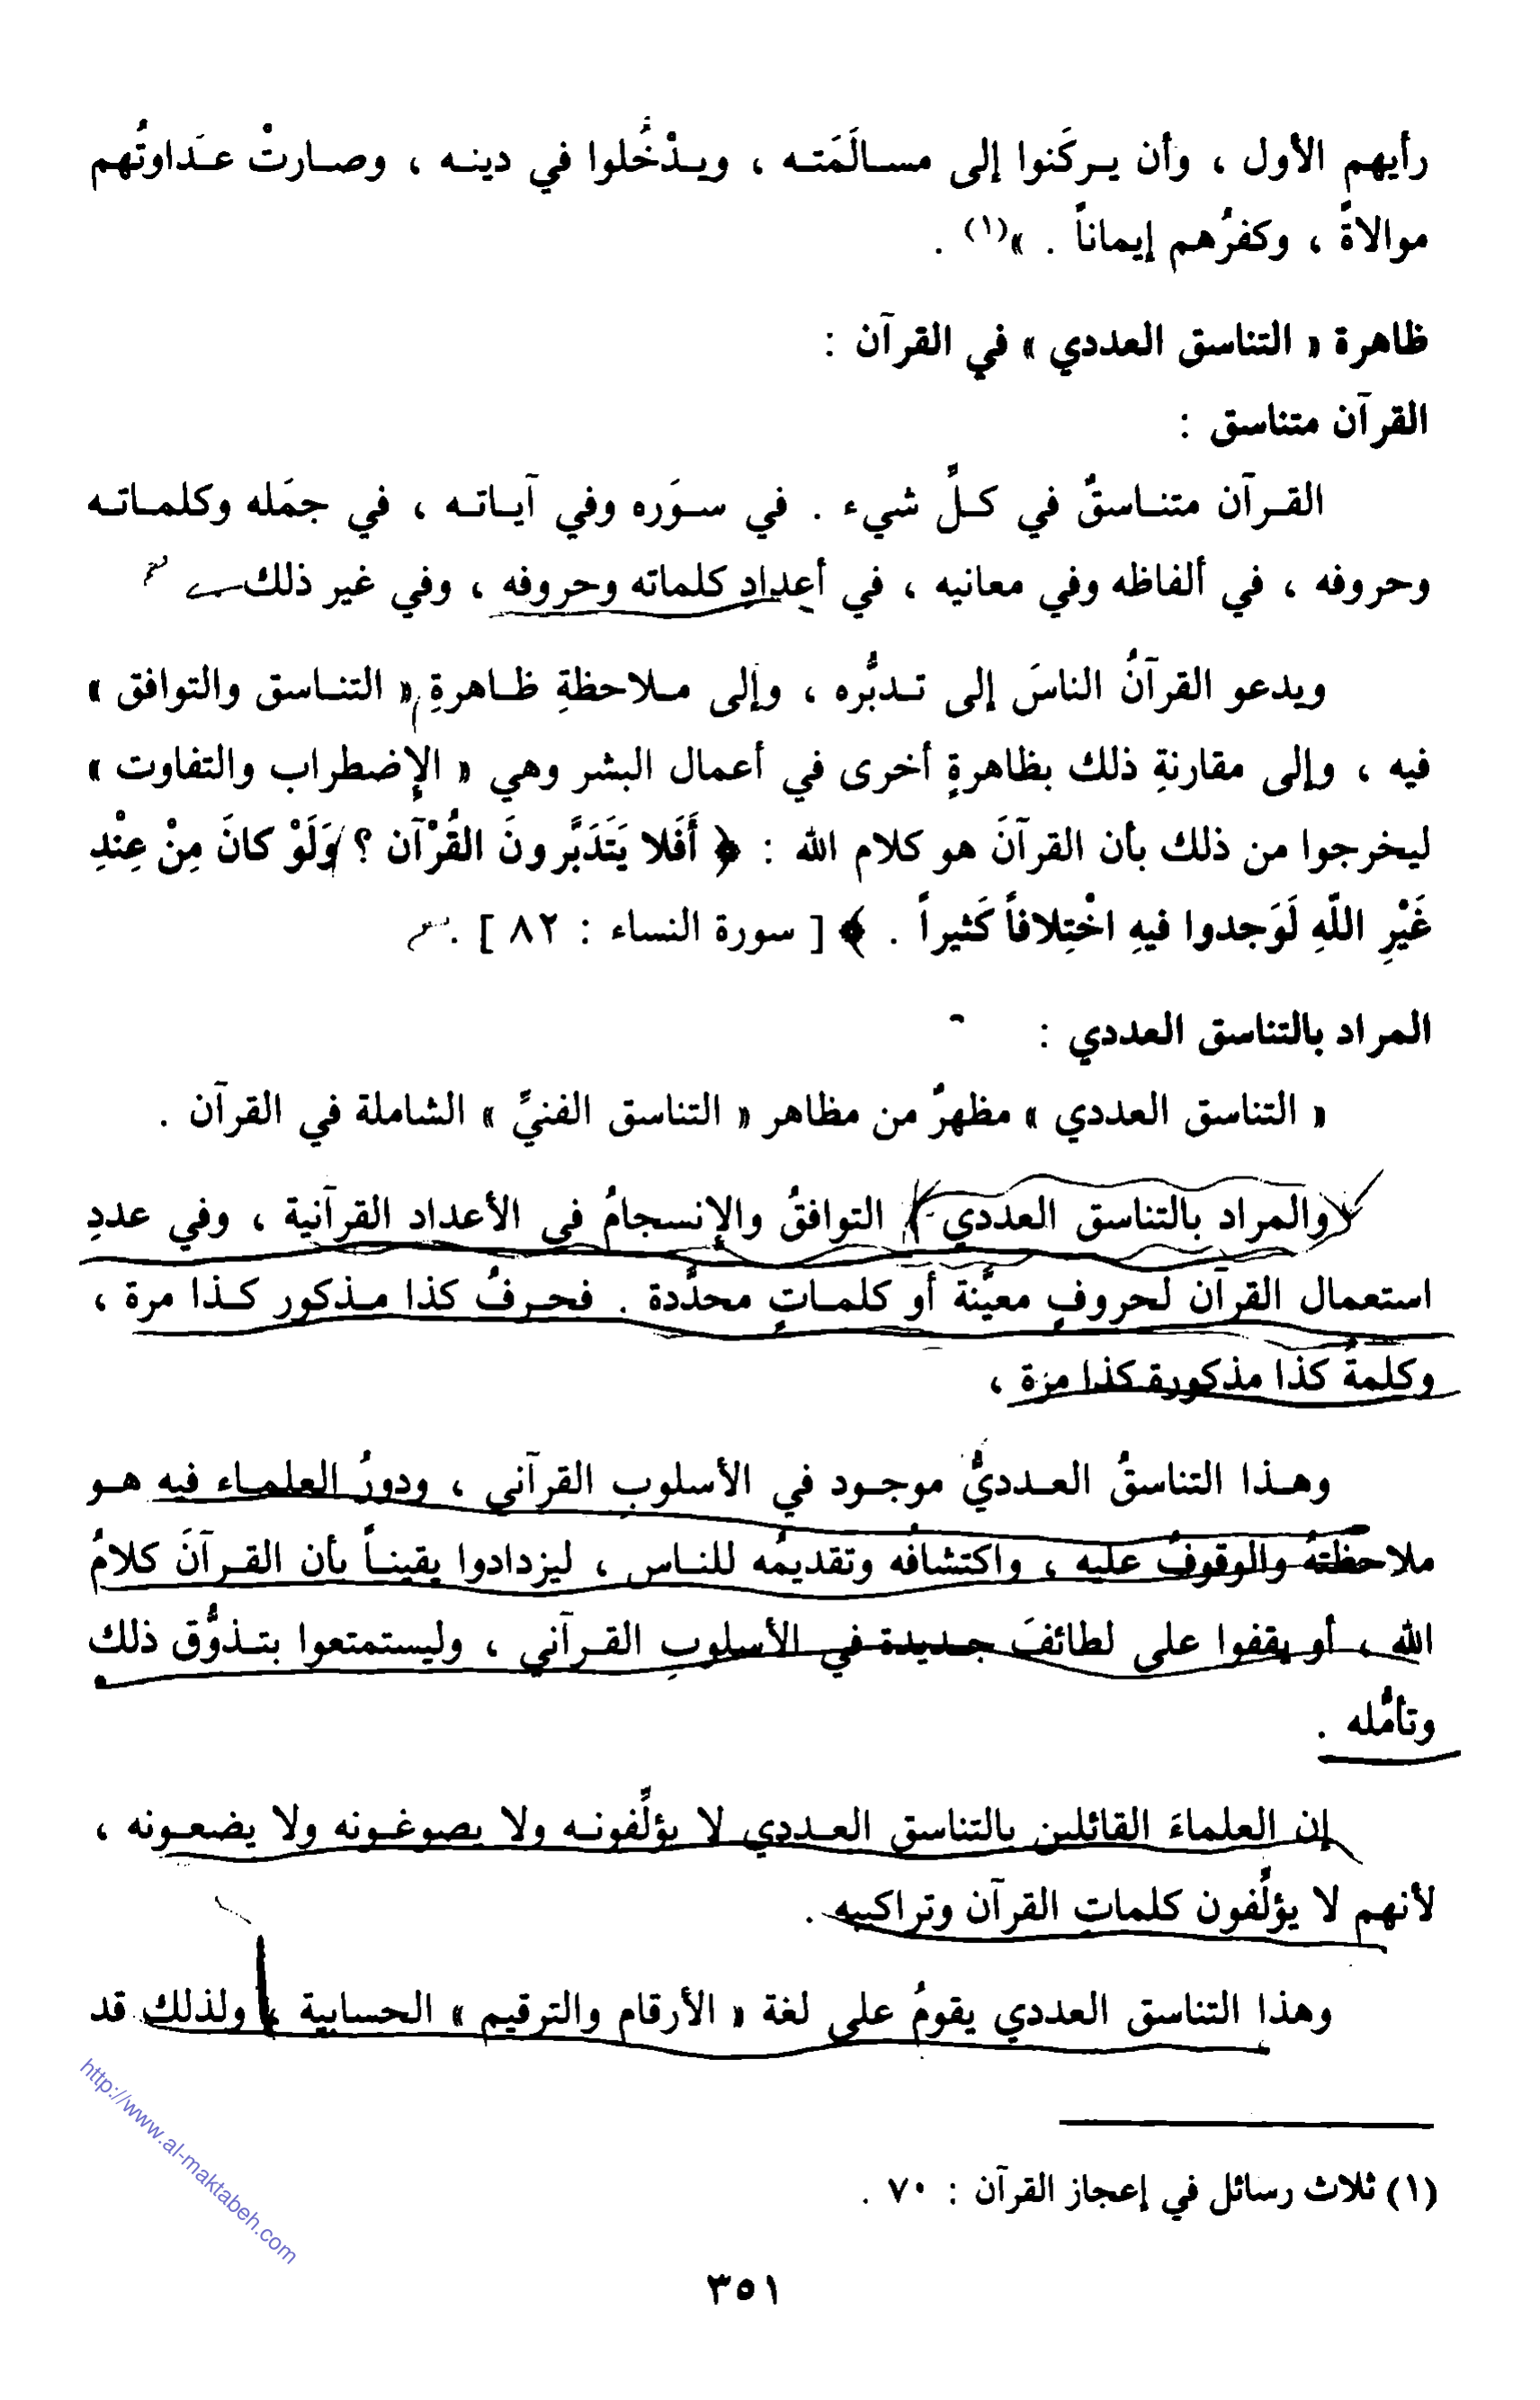 رأيهم الأول ، وأن يـركَنوا إلى مسـالَمَتـه ، ويـدْخُلوا في دينـه ، وصـارتْ عـَداوتُهم
موالاةً ، وكفرُهم إيماناً . »(١) .
ظاهرة « التناسق العددي » في القرآن :
القرآن متناسق :
القـرآن متنـاسقٌ في كـلِّ شيء . في سـوَره وفي آيـاتـه ، في جمَله وكلمـاتـه
وحروفه ، في ألفاظه وفي معانيه ، في أعداد كلماته وحروفه ، وفي غير ذلك
ويدعو القرآنُ الناسَ إلى تـدبُّره ، وإلى مـلاحظةِ ظـاهرةِ « التنـاسق والتوافق »
فيه ، وإلى مقارنةِ ذلك بظاهرةٍ أخرى في أعمال البشر وهي « الإضطراب والتفاوت »
ليخرجوا من ذلك بأن القرآنَ هو كلام الله : ﴿ أَفَلا يَتَدَبَّرونَ القُرْآن ؟ وَلَوْ كانَ مِنْ عِنْدِ
غَيْرِ اللَّهِ لَوَجدوا فيهِ اخْتِلافاً كَثيراً . ﴾ [ سورة النساء : ٨٢ ] .
المراد بالتناسق العددي :
« التناسق العددي » مظهرٌ من مظاهر « التناسق الفنيِّ » الشاملة في القرآن .
والمراد بالتناسق العددي التوافقُ والإنسجامُ في الأعداد القرآنية ، وفي عددِ
استعمال القرآن لحروفٍ معيَّنة أو كلمـاتٍ محدَّدة . فحـرفُ كذا مـذكور كـذا مرة ،
وكلمةُ كذا مذكورة كذا مرة ،
وهـذا التناسقُ العـدديُّ موجـود في الأسلوبِ القرآني ، ودورُ العلمـاء فيه هـو
ملاحظتهُ والوقوفُ عليه ، واكتشافُه وتقديمُه للنـاس ، ليزدادوا يقينـاً بأن القـرآنَ كلامُ
الله ، أو يقفوا على لطائفَ جـديدة في الأسلوبِ القـرآني ، وليستمتعوا بتـذوُّق ذلك
وتأمُّله .
إن العلماءَ القائلين بالتناسق العـددي لا يؤلِّفونـه ولا يصوغـونه ولا يضعـونه ،
لأنهم لا يؤلِّفون كلماتِ القرآن وتراكيبه .
وهذا التناسق العددي يقومُ على لغة « الأرقام والترقيم » الحسابية ، ولذلك قد
(١) ثلاث رسائل في إعجاز القرآن : ٧٠ .
٣٥١
http://www.al-maktabeh.com